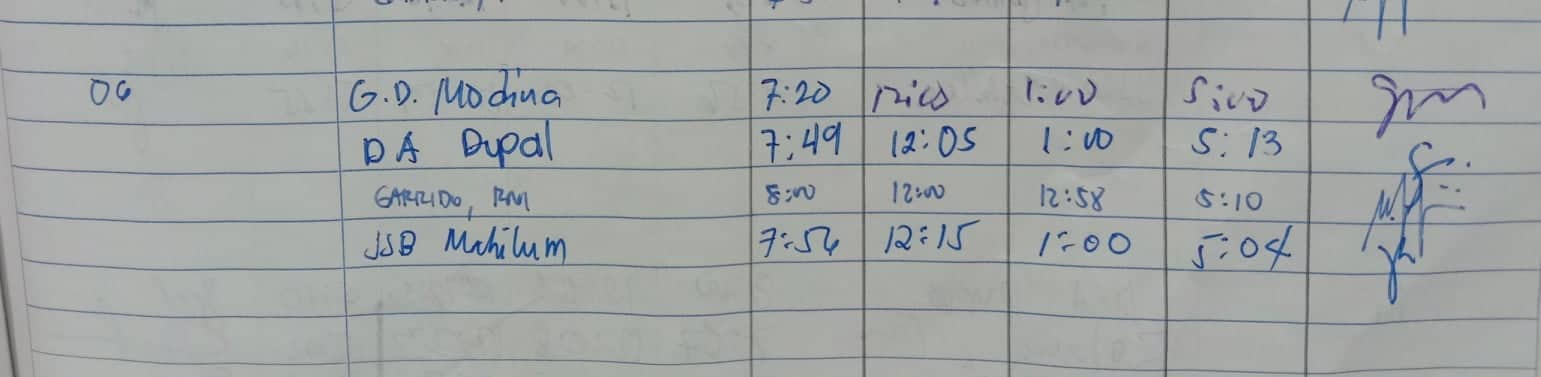 06 G.D. Modina 7:20 12:00 1:00 5:00
DA Dupal 7:49 12:05 1:00 5:13
GARRIDO, RM 8:00 12:00 12:58 5:10
JSB Mahilum 7:56 12:15 1:00 5:04